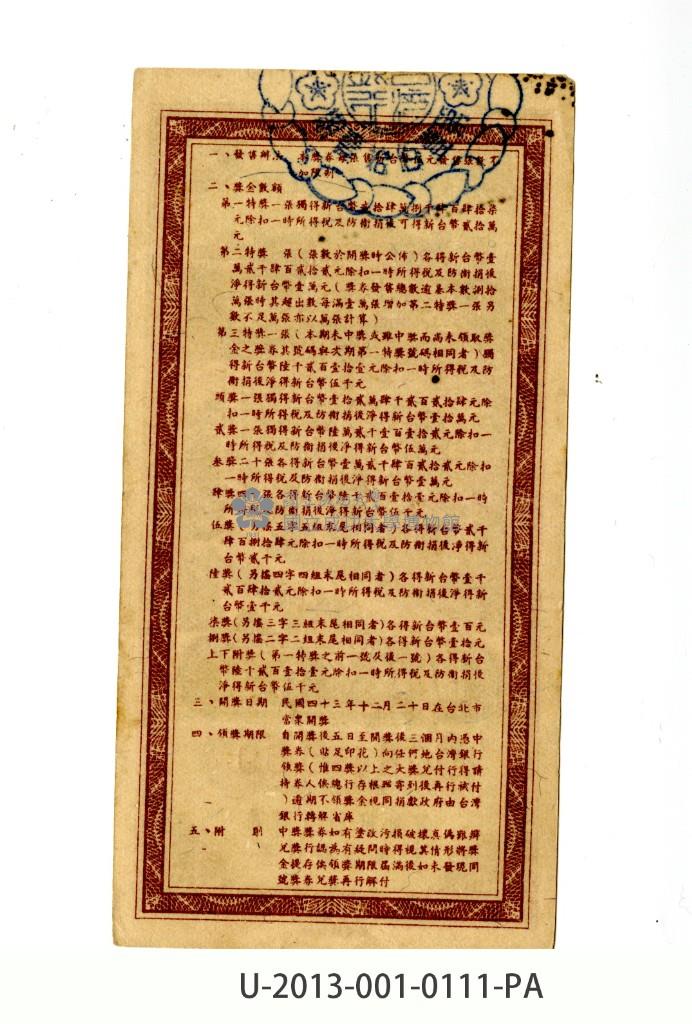 一、發售辦法 本獎券每張售新台幣伍元發售張數不
加限制
二、獎金數額
第一特獎一張獨得新台幣貳拾肆萬捌千肆百肆拾柒
元除扣一時所得稅及防衛捐後可得新台幣貳拾萬
元
第二特獎 張(張數於開獎時公佈)各得新台幣壹
萬貳千肆百貳拾貳元除扣一時所得稅及防衛捐後
淨得新台幣壹萬元(獎券發售總數逾基本數捌拾
萬張時其超出數每滿壹萬張增加第二特獎一張另
數不足萬張亦以萬張計算)
第三特獎一張(本期未中獎或雖中獎而尚未領取獎
金之獎券其號碼與次期第一特獎號碼相同者)獨
得新台幣陸千貳百壹拾壹元除扣一時所得稅及防
衛捐後淨得新台幣伍千元
頭獎一張獨得新台幣壹拾貳萬肆千貳百貳拾肆元除
扣一時所得稅及防衛捐後淨得新台幣壹拾萬元
貳獎一張獨得新台幣陸萬貳千壹百壹拾貳元除扣一
時所得稅及防衛捐後淨得新台幣伍萬元
叁獎二十張各得新台幣壹萬貳千肆百貳拾貳元除扣
一時所得稅及防衛捐後淨得新台幣壹萬元
肆獎四 張各得新台幣陸千貳百壹拾壹元除扣一時
所得稅及防衛捐後淨得新台幣伍千元
伍獎 五字五組末尾相同者)各得新台幣貳千
肆百捌拾肆元除扣一時所得稅及防衛捐後淨得新
台幣貳千元
陸獎(另搖四字四組末尾相同者)各得新台幣壹千
貳百肆拾貳元除扣一時所得稅及防衛捐後淨得新
台幣壹千元
柒獎(另搖三字三組末尾相同者)各得新台幣壹百元
捌獎(另搖二字二組末尾相同者)各得新台幣壹拾元
上下附獎(第一特獎之前一號及後一號)各得新台
幣陸千貳百壹拾壹元除扣一時所得稅及防衛捐後
淨得新台幣伍千元
三、開獎日期 民國四十三年十二月二十日在台北市
當眾開獎
四、領獎期限 自開獎後五日至開獎後三個月內憑中
獎券(貼足印花)向任何地台灣銀行
領獎(惟四獎以上之大獎兌付行得請
持券人俟總行存根聯寄到後再行試付
)逾期不領獎金視同捐獻政府由台灣
銀行轉解省庫
五、附 則 中獎獎券如有塗改污損破壞真偽難辨
兌獎行認為有疑問時得視其情形將獎
金提存俟領獎期限屆滿後如未發現同
號獎券兌獎再行解付
U-2013-001-0111-PA